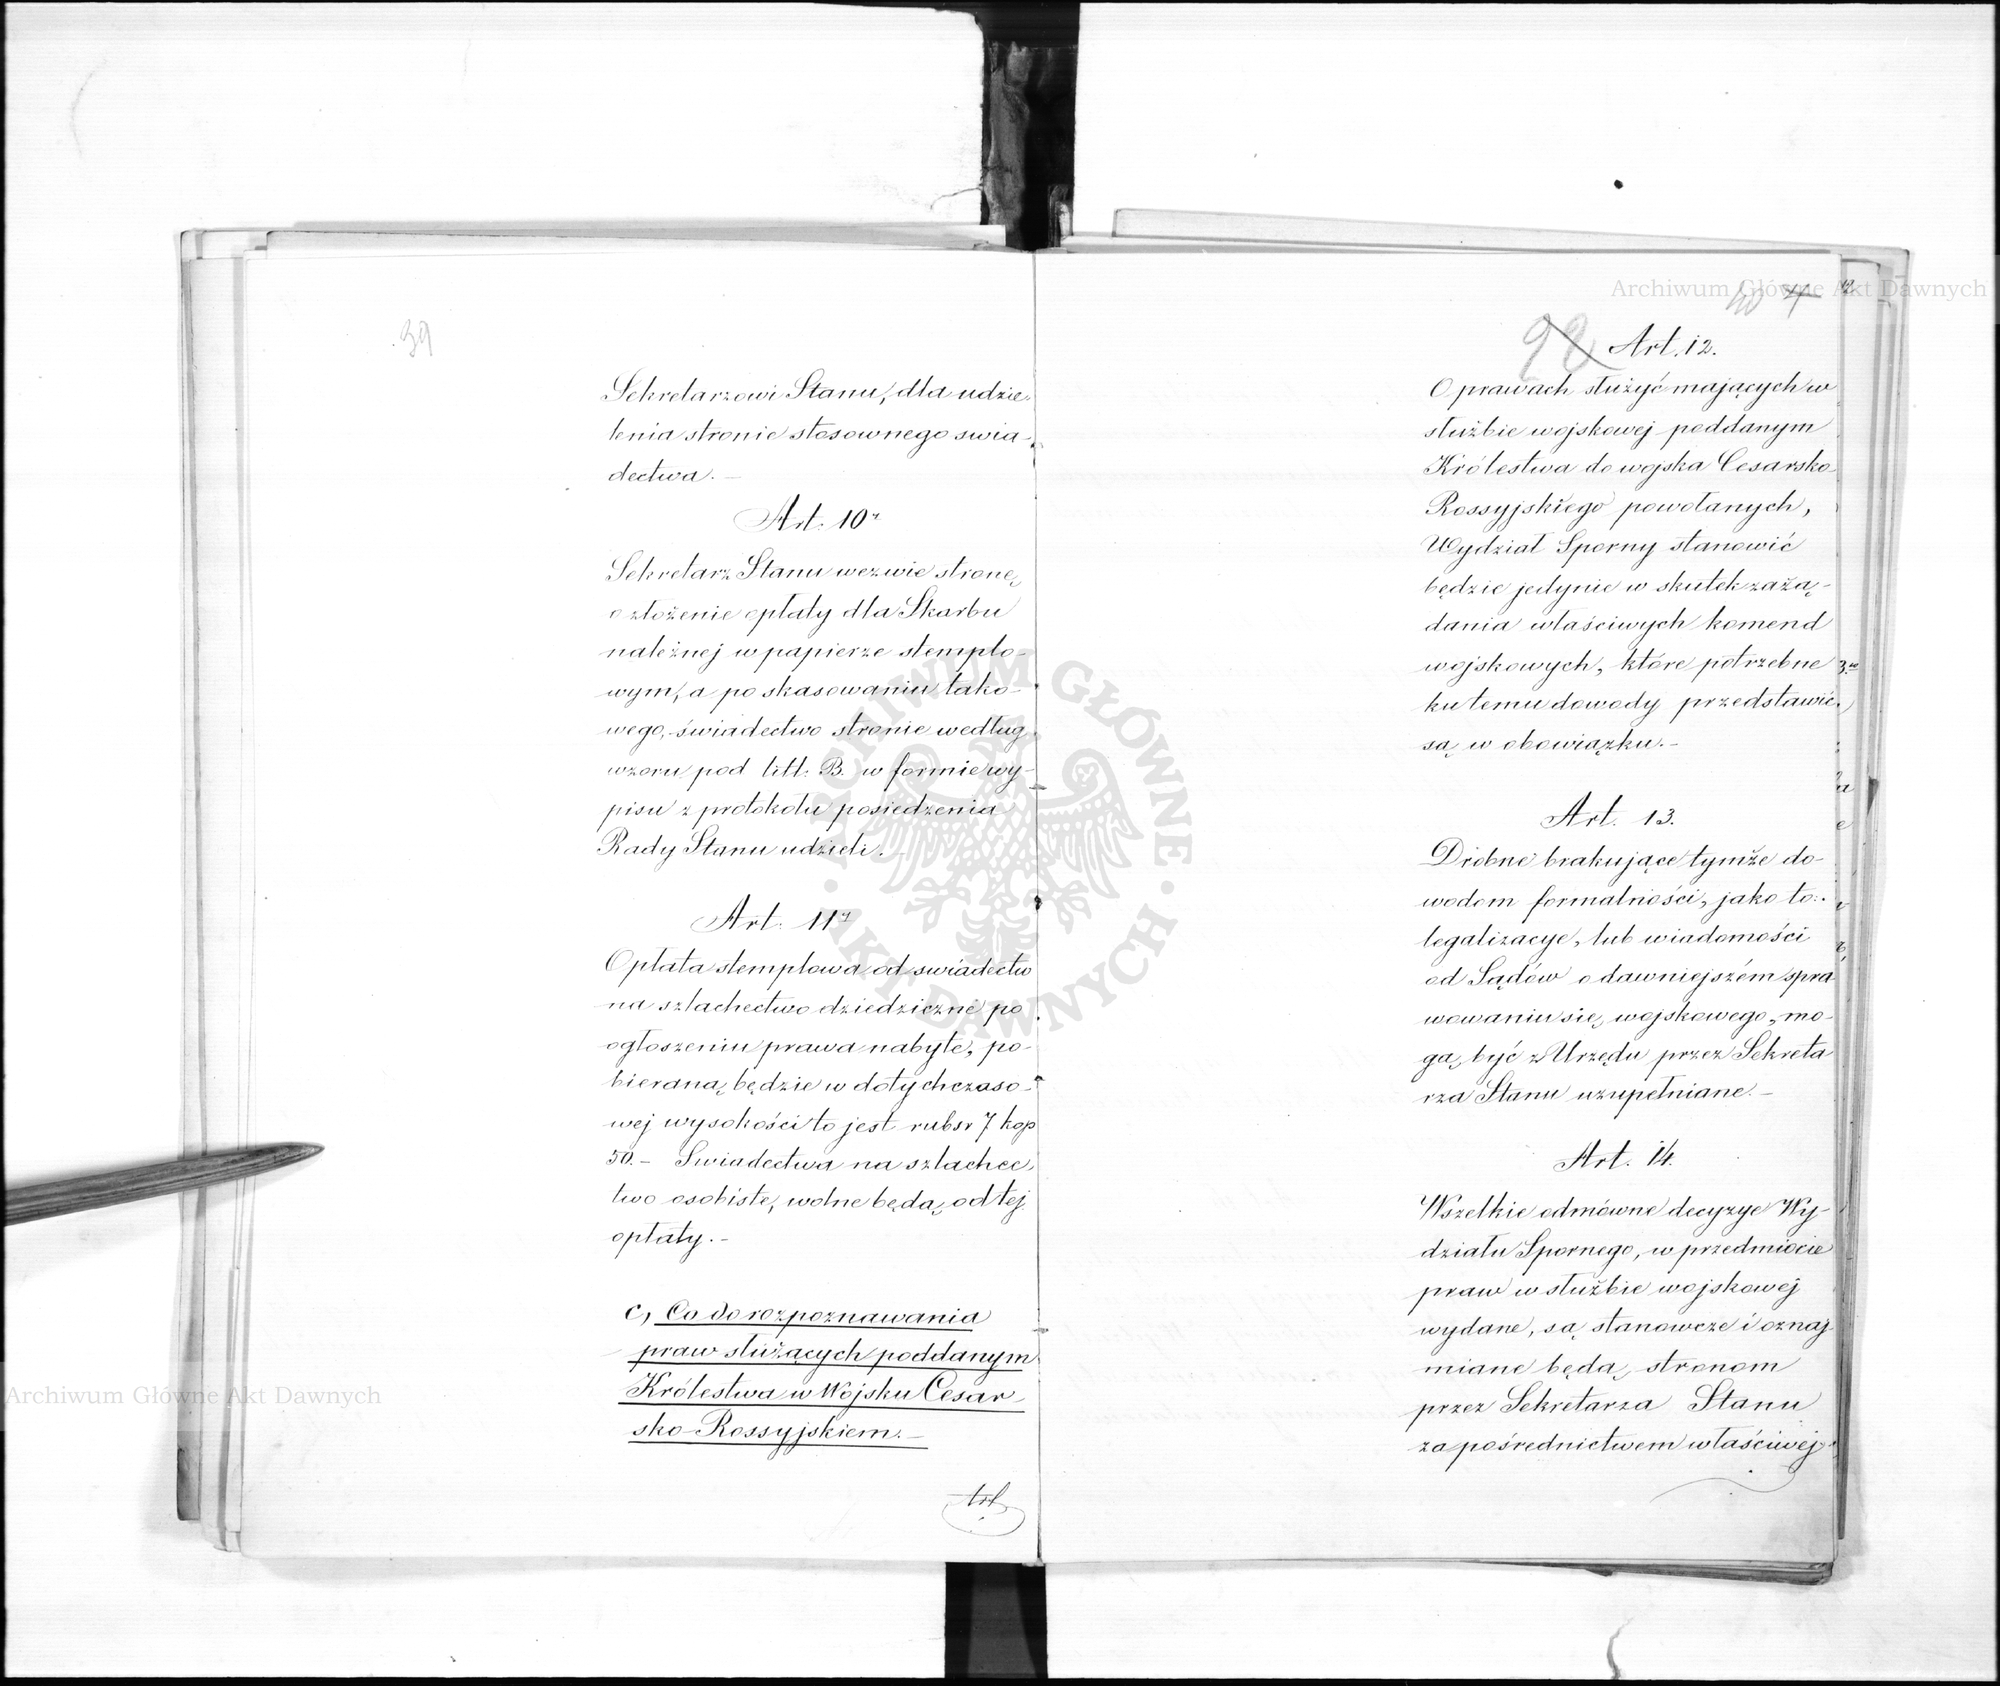 39
Sekretarzowi Stanu, dla udzie-
lenia stronie stosownego swia-
dectwa. -
Art. 10
Sekretarz Stanu wezwie stronę
o złożenie opłaty dla Skarbu
należnej w papierze stemplo-
wym, a po skasowaniu tako-
wego, świadectwo stronie według
wzoru pod litt. B. w formie wy-
pisu z protokołu posiedzenia
Rady Stanu udzieli. -
Art. 11
Opłata stemplowa od swiadectw
na szlachectwo dziedziczne po
ogłoszeniu prawa nabyte, po-
bieraną będzie w dotychczaso-
wej wysokości to jest rubsr 7 kop
50. - Swiadectwa na szlachec-
two osobiste, wolne będą od tej
opłaty. -
c, Co do rozpoznawania
praw służących poddanym
Królestwa w Wojsku Cesar-
sko-Rossyjskiem. -
Art.
40 4
92
Art. 12.
O prawach służyć mających w
służbie wojskowej poddanym
Królestwa do wojska Cesarsko-
Rossyjskiego powołanych,
Wydział Sporny stanowić
będzie jedynie w skutek zażą-
dania właściwych komend
wojskowych, które potrzebne
ku temu dowody przedstawić
są w obowiązku. -
Art. 13.
Drobne brakujące tymże do-
wodom formalności, jako to:
legalizacye, lub wiadomości
od Sądów o dawniejszém spra
wowaniu się wojskowego, mo-
gą być z Urzędu przez Sekreta
rza Stanu uzupełniane. -
Art. 14.
Wszelkie odmówne decyzye Wy-
działu Spornego, w przedmiocie
praw w służbie wojskowej
wydane, są stanowcze i oznaj
miane będą stronom
przez Sekretarza Stanu
za pośrednictwem właściwej
Archiwum Główne Akt Dawnych
Archiwum Główne Akt Dawnych
ARCHIWUM GŁÓWNE · AKT DAWNYCH ·